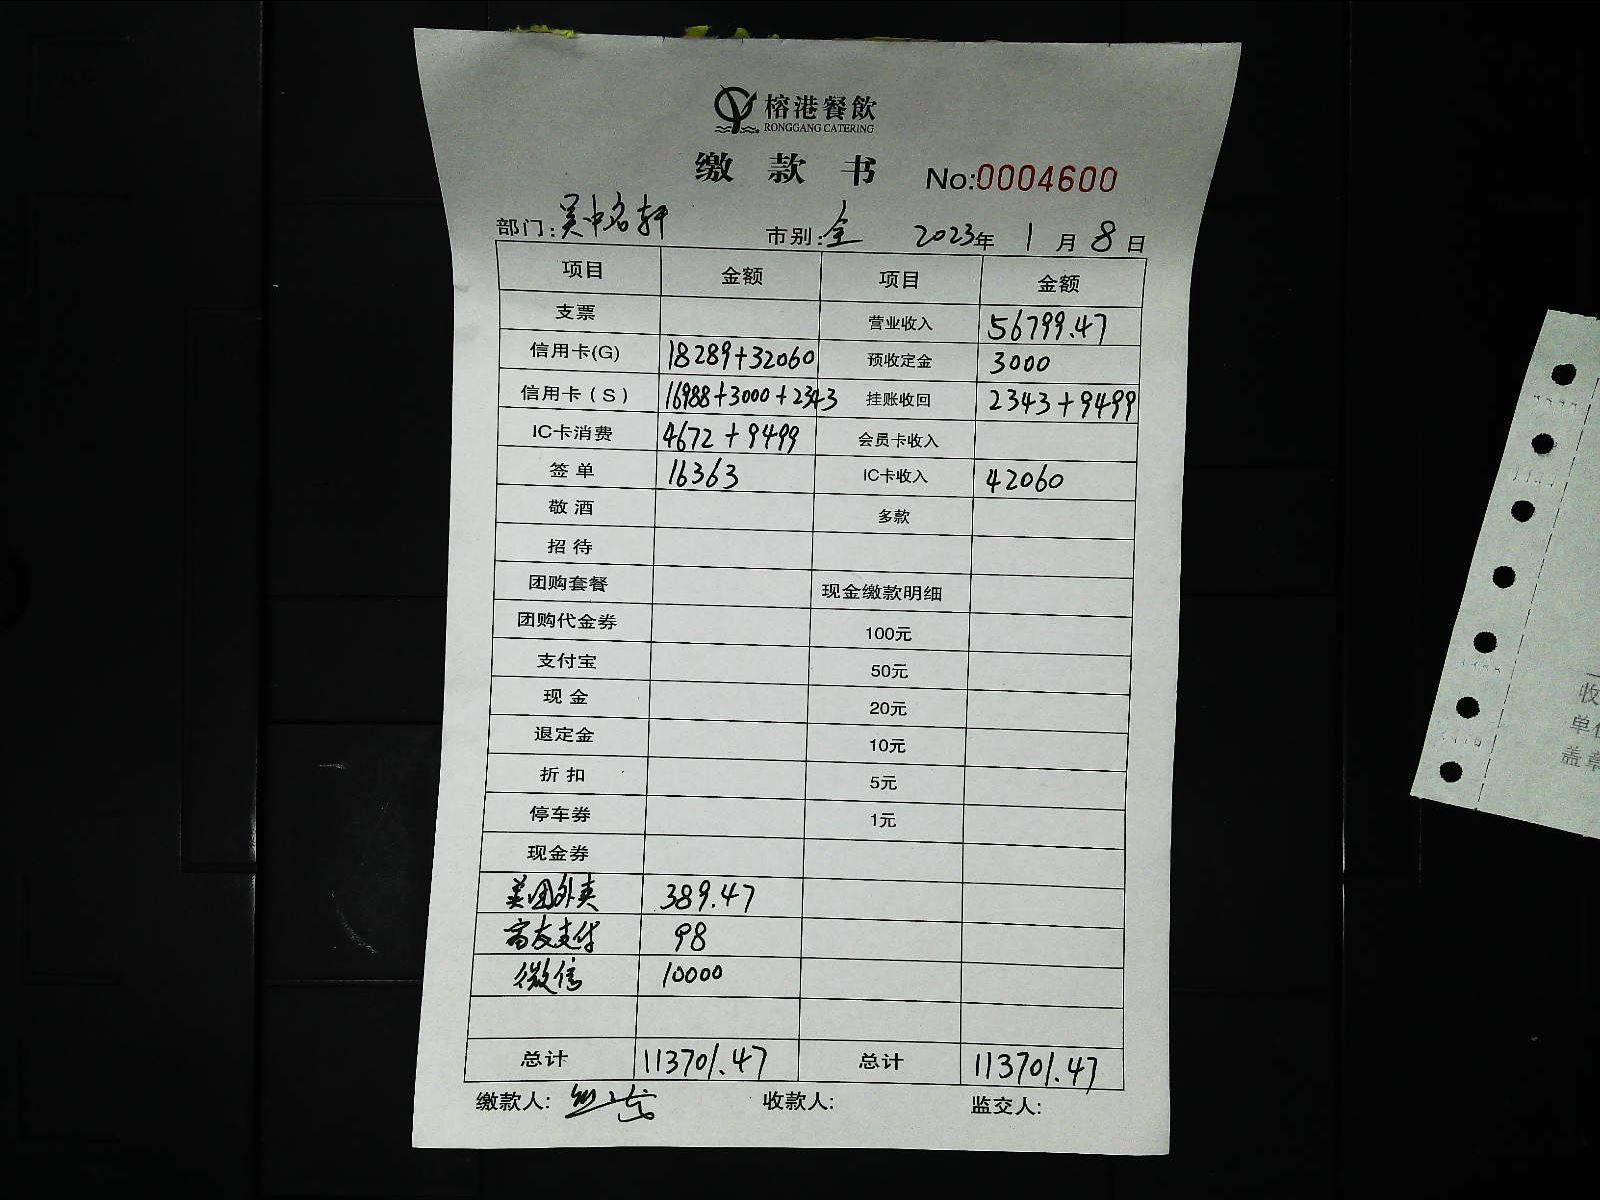 榕港餐飲
RONGGANG CATERING
缴 款 书 No:0004600
部门:吴中名轩 市别:全 2023年 1月 8日
项目 金额 项目 金额
支票 营业收入 56799.47
信用卡(G) 18289+32060 预收定金 3000
信用卡(S) 16988+3000+2343 挂账收回 2343+9499
IC卡消费 4672+9499 会员卡收入
签单 16363 IC卡收入 42060
敬酒 多款
招待
团购套餐 现金缴款明细
团购代金券 100元
支付宝 50元
现金 20元
退定金 10元
折扣 5元
停车券 1元
现金券
美团外卖 389.47
支付 98
微信 10000
总计 113701.47 总计 113701.47
缴款人: 收款人: 监交人:
收
单
盖章